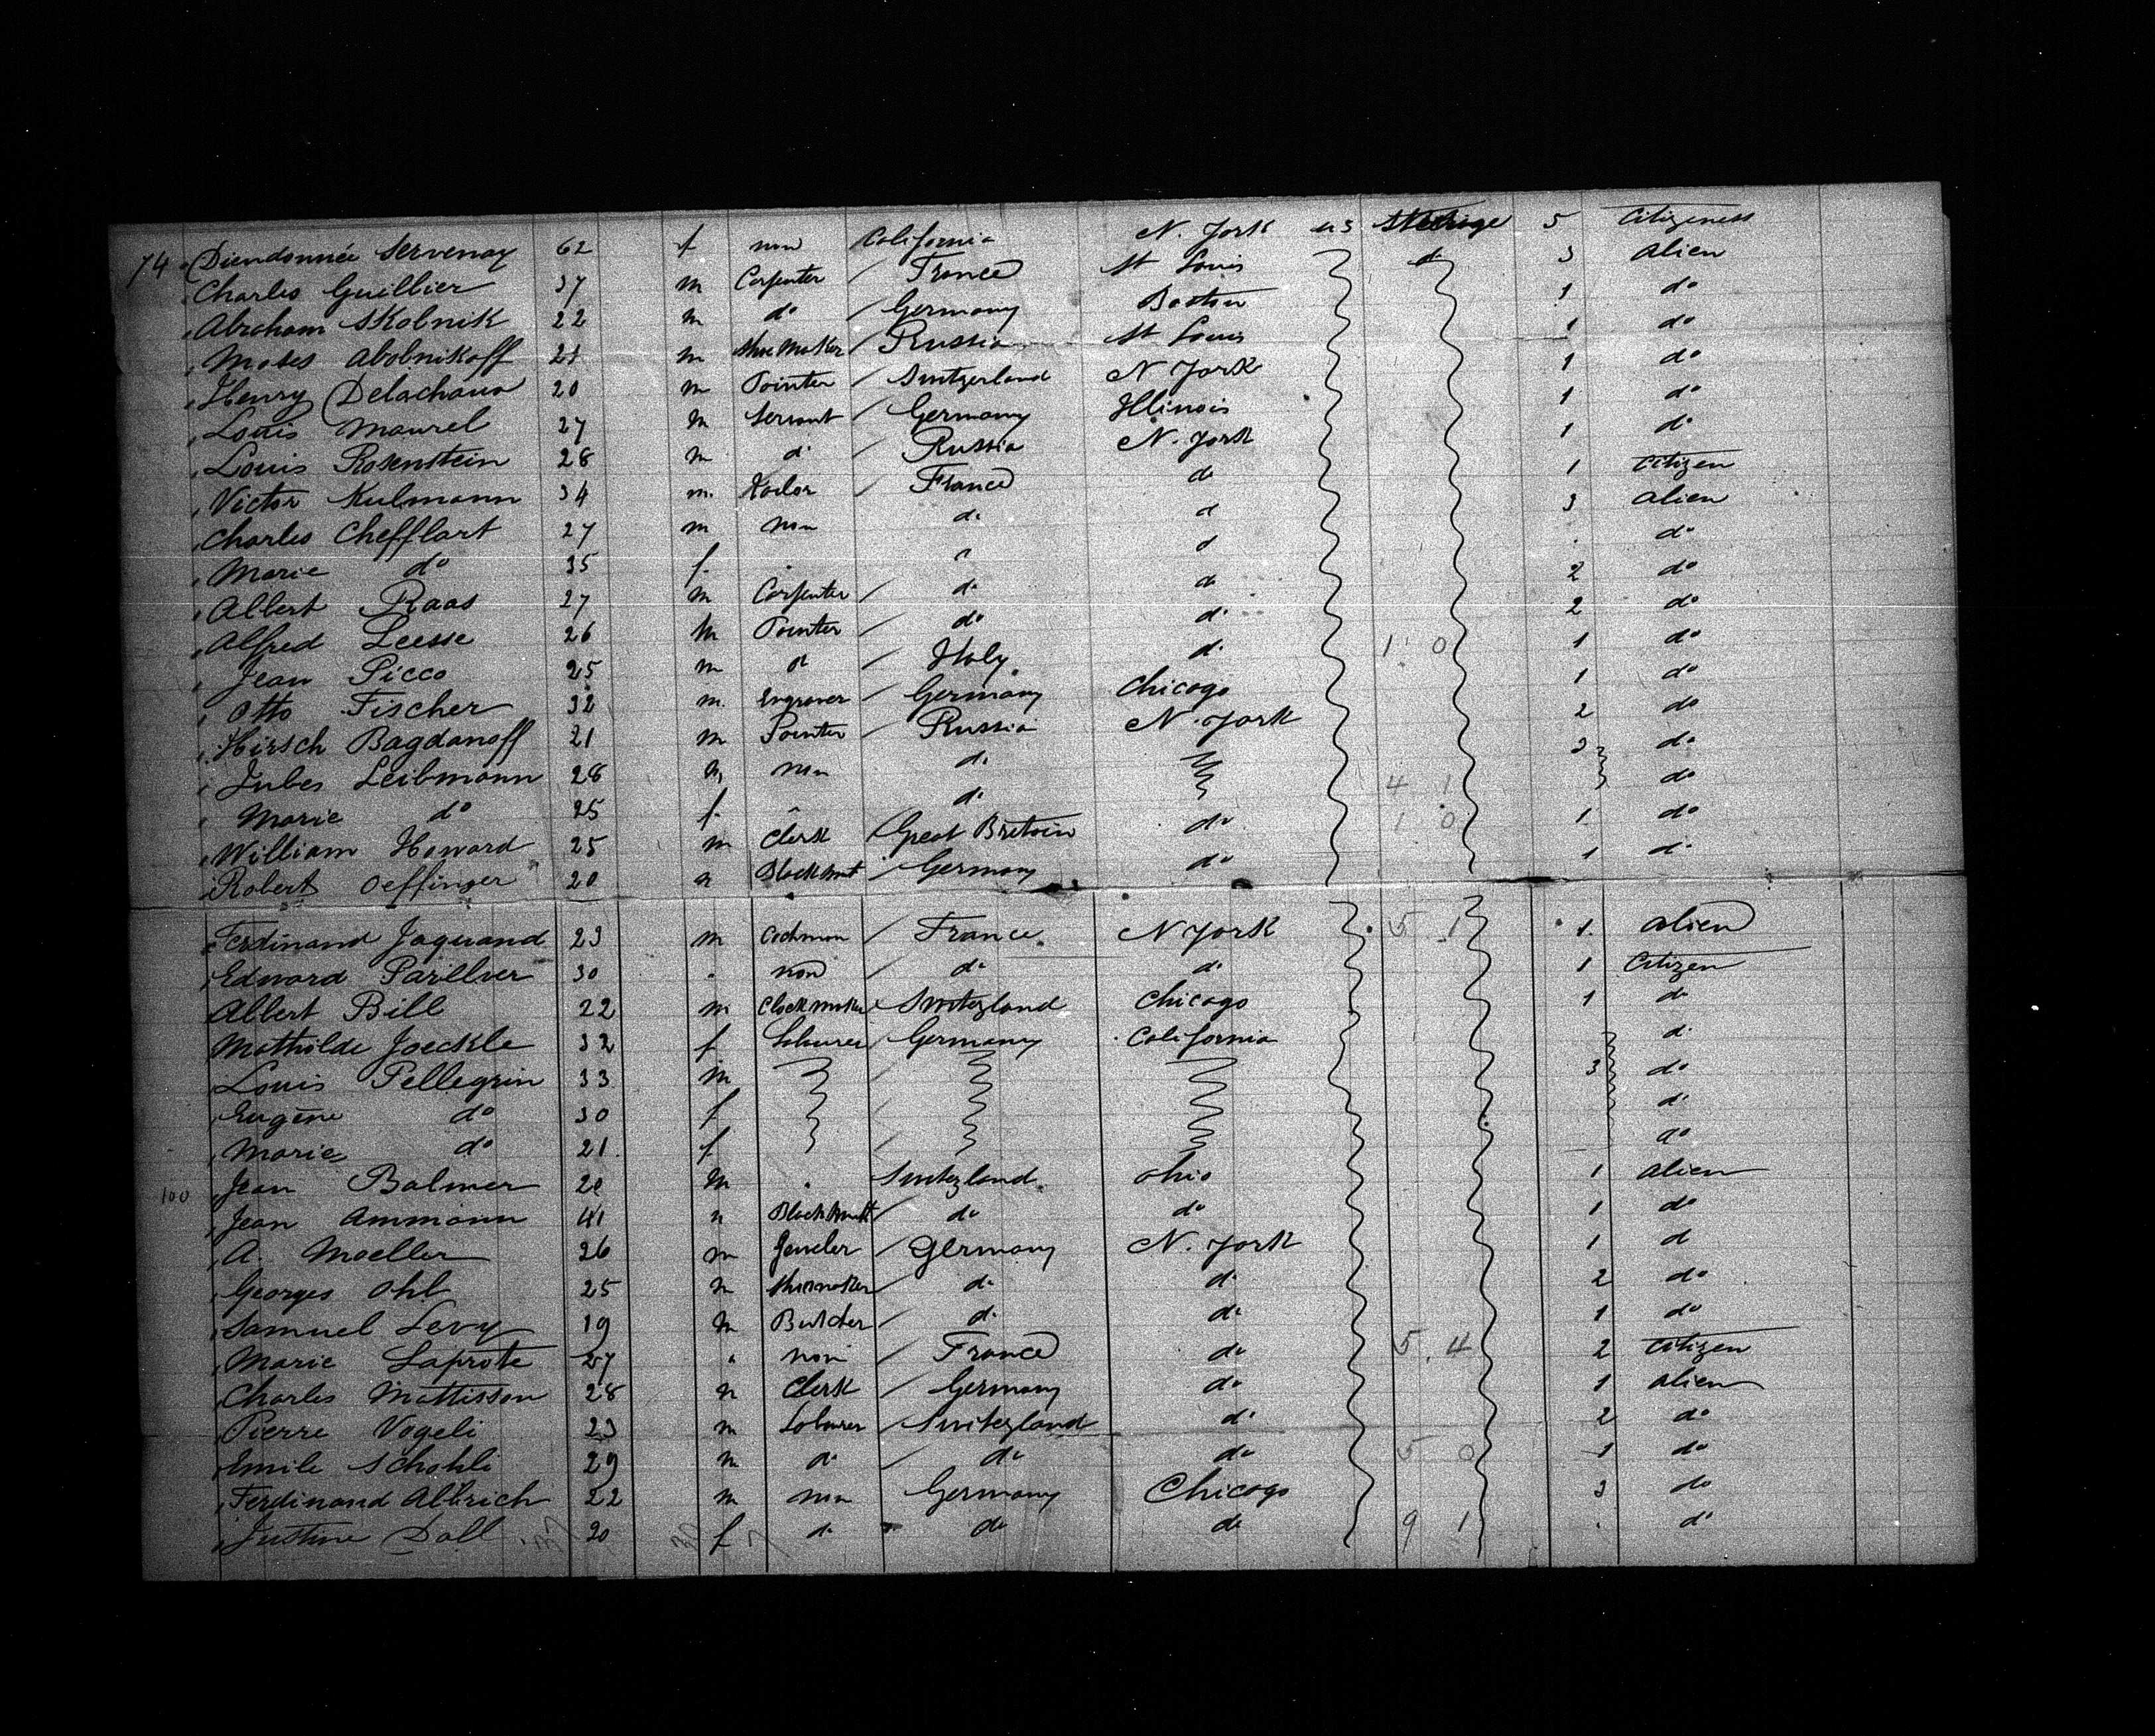 74 Dieudonnée Servenay 62 f non California N. York US Steerage 5 Citizeness
Charles Guillier 37 m Carpenter France St Louis do 3 alien
Abraham Skolnik 22 m do Germany Boston 1 do
Moses Abolnikoff 21 m Shoe Maker Russia St Louis 1 do
Henry Delachaux 20 m Painter Switzerland N York 1 do
Louis Maurel 27 m Servant Germany Illinois 1 do
Louis Rosenstein 28 m do Russia N. York 1 do
Victor Kulmann 34 m. Tailor France do 1 Citizen
Charles Chefflart 27 m non do do 3 alien
Marie do 35 f do do
Albert Raas 27 m Carpenter do do 2 do
Alfred Leesse 26 m Painter do do 2 do
Jean Picco 25 m do Italy do 1 0 1 do
Otto Fischer 32 m. Engraver Germany Chicago 1 do
Hirsch Bagdanoff 21 m Painter Russia N. York 2 do
Jubes Leibmann 28 m non do 3 do
Marie do 25 f do 4 1 do
William Howard 25 m Clerk Great Bretain do 1 0 1 do
Robert Oeffinger 20 m Blacksmit Germany do 1 do
Ferdinand Jaquand 23 m Cochman France N York 5 1 1 alien
Edward Parillier 30 non do do 1 Citizen
Albert Bill 22 m Clockmaker Switzland Chicago 1 do
Mathilde Joeckle 32 f Labourer Germany California do
Louis Pellegrin 33 m 3 do
Eugène do 30 f do
Marie do 21 f do
100 Jean Balmer 20 m Switzland Ohio 1 alien
Jean Ammann 41 m Blacksmitt do do 1 do
A. Moeller 26 m Jeweler Germany N. York 1 do
Georges Ohl 25 m Shoemaker do do 2 do
Samuel Levy 19 m Butcher do do 1 do
Marie Laprote 27 non France do 5 4 2 Citizen
Charles Mattisson 28 m Clerk Germany do 1 alien
Pierre Vogeli 23 m Labourer Switzland do 2 do
Emile Schohli 29 m do do do 5 0 1 do
Ferdinand Albrich 22 m non Germany Chicago 3 do
Justine Doll 20 f do do do 9 1 do